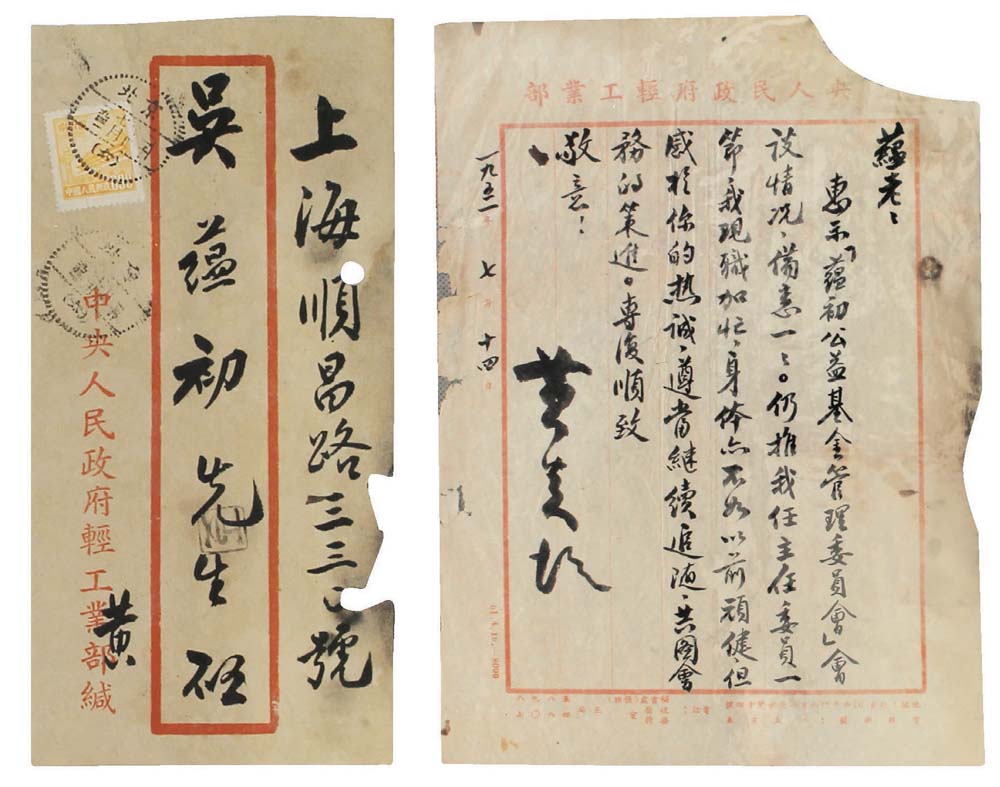 上海順昌路三三〇號
吳蘊初先生啟
中央人民政府輕工業部緘
黃
中國人民郵政
800
央人民政府輕工業部
蘊老：
惠示「蘊初公益基金管理委員會」會
議情況，備悉一一。仍推我任主任委員一
節，我現職加忙，身体亦不如以前頑健，但
感於你的热誠，遵當繼續追随，共圖會
務的策進。專復順致
敬意！
黃炎培
一九五二年七月十四日